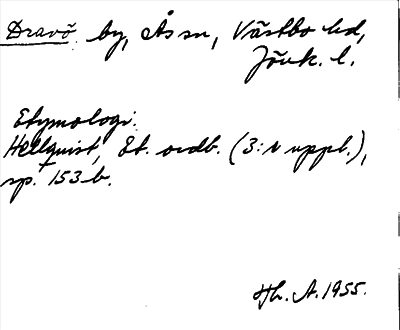 Dravö by, Ås sn, Västbo hd,
Jönk. l.
Etymologi:
Hellquist, Et. ordb. (3:e uppl.),
sp. 153 b.
Hh. A. 1955.